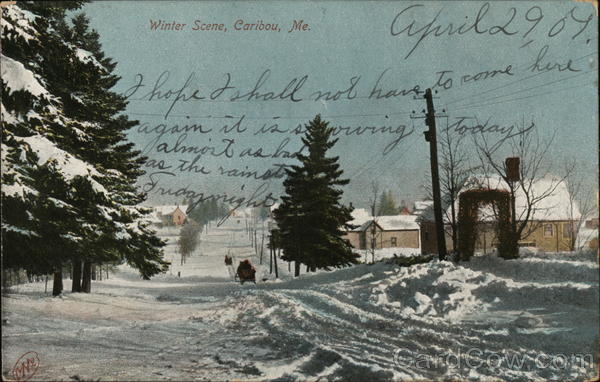 Winter Scene, Caribou, Me.
April 29, 09.
I hope I shall not have to come here
again it is snowing today
almost as bad
as the rain of
Friday night
CardCow.com